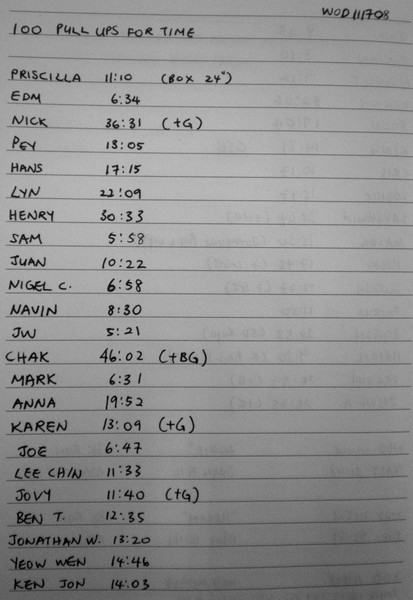 WOD 111708
100 PULL UPS FOR TIME
PRISCILLA 11:10 (BOX 24")
EDM 6:34
NICK 36:31 (+G)
PEY 13:05
HANS 17:15
LYN 22:09
HENRY 30:33
SAM 5:58
JUAN 10:22
NIGEL C. 6:58
NAVIN 8:30
JW 5:21
CHAK 46:02 (+BG)
MARK 6:31
ANNA 19:52
KAREN 13:09 (+G)
JOE 6:47
LEE CHIN 11:33
JOVY 11:40 (+G)
BEN T. 12:35
JONATHAN W. 13:20
YEOW WEN 14:46
KEN JON 14:03